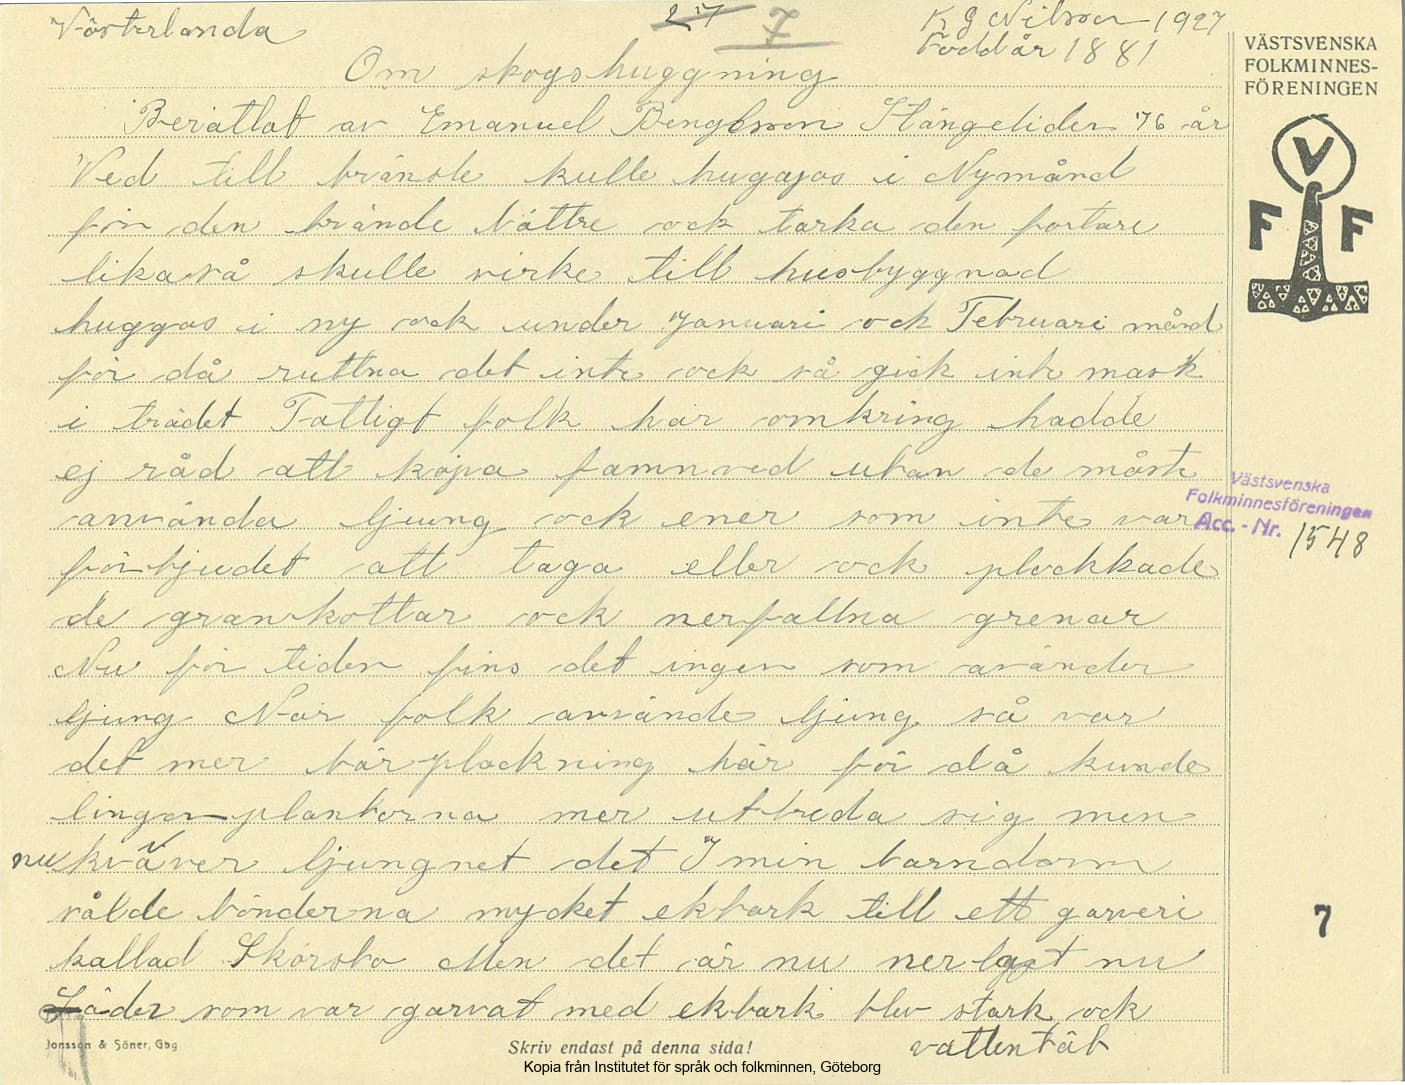 Västerlanda
27 7
K G Nilson 1927
Född år 1881
VÄSTSVENSKA
FOLKMINNES-
FÖRENINGEN
V
F F
Om skogshuggning
Berättat av Emanuel Bengtsson Stängelider 76 år
Ved till bränsle kulle huggas i Nymånd
för den brände bättre ock torka den fortare
likaså skulle virke till husbyggnad
huggas i ny ock under Januari ock Februari månd
för då ruttna det inte ock så gick inte mask
i trädet Fattigt folk här omkring hadde
ej råd att köpa famnved utan de måste
använda ljung ock ener som inte var
förbjudet att taga eller ock plockkade
de grankottar ock nerfallna grenar
Nu för tiden fins det ingen som avänder
ljung När folk använde ljung så var
det mer bärplockning här för då kunde
lingonplantorna mer utbreda sig men
nu kväver ljungnet det I min barndom
sålde bönderna mycket ekbark till ett garveri
kallad Skörsbo Men det är nu nerlagt nu
Läder som var garvat med ekbark blev stark ock
vattentät
Västsvenska
Folkminnesföreningen
Acc. - Nr. 1548
7
Jonsson & Söner, Gbg
Skriv endast på denna sida!
Kopia från Institutet för språk och folkminnen, Göteborg